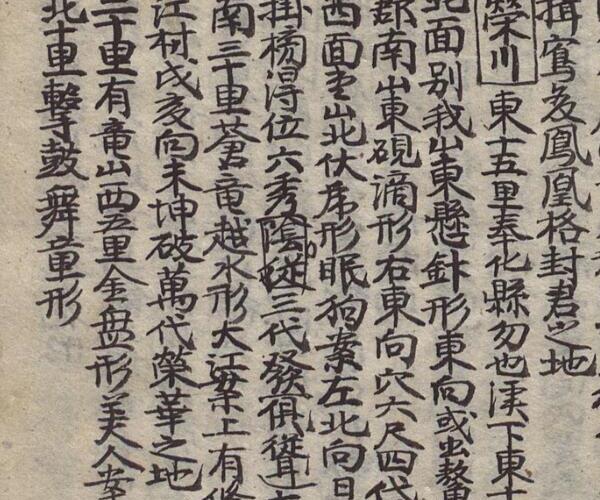 揖寫爰鳳凰格封君之地
榮川 東十五里奉化縣勿也渓下東十
北面別我山東懸針形東向或出
郡南山東硯滴形右東向穴六尺四代
西面 山北伏虎形眠狗案左北向日
掛榜得位六秀陰 三代發
南三十里蒼竜越水形大江案上有
江村戌亥向未坤破萬代榮華之地
二十里有竜山西五里金盘形美人案
北十里擊鼓舞童形